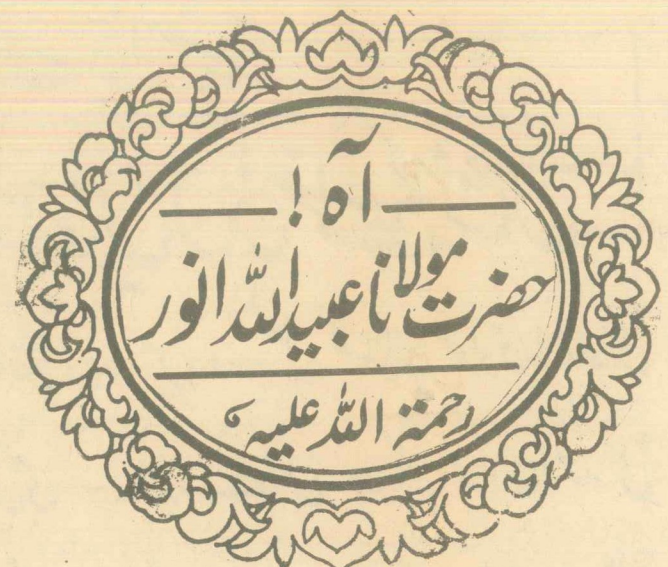 آہ!
حضرت مولانا عبید اللہ انور
رحمتہ اللہ علیہ